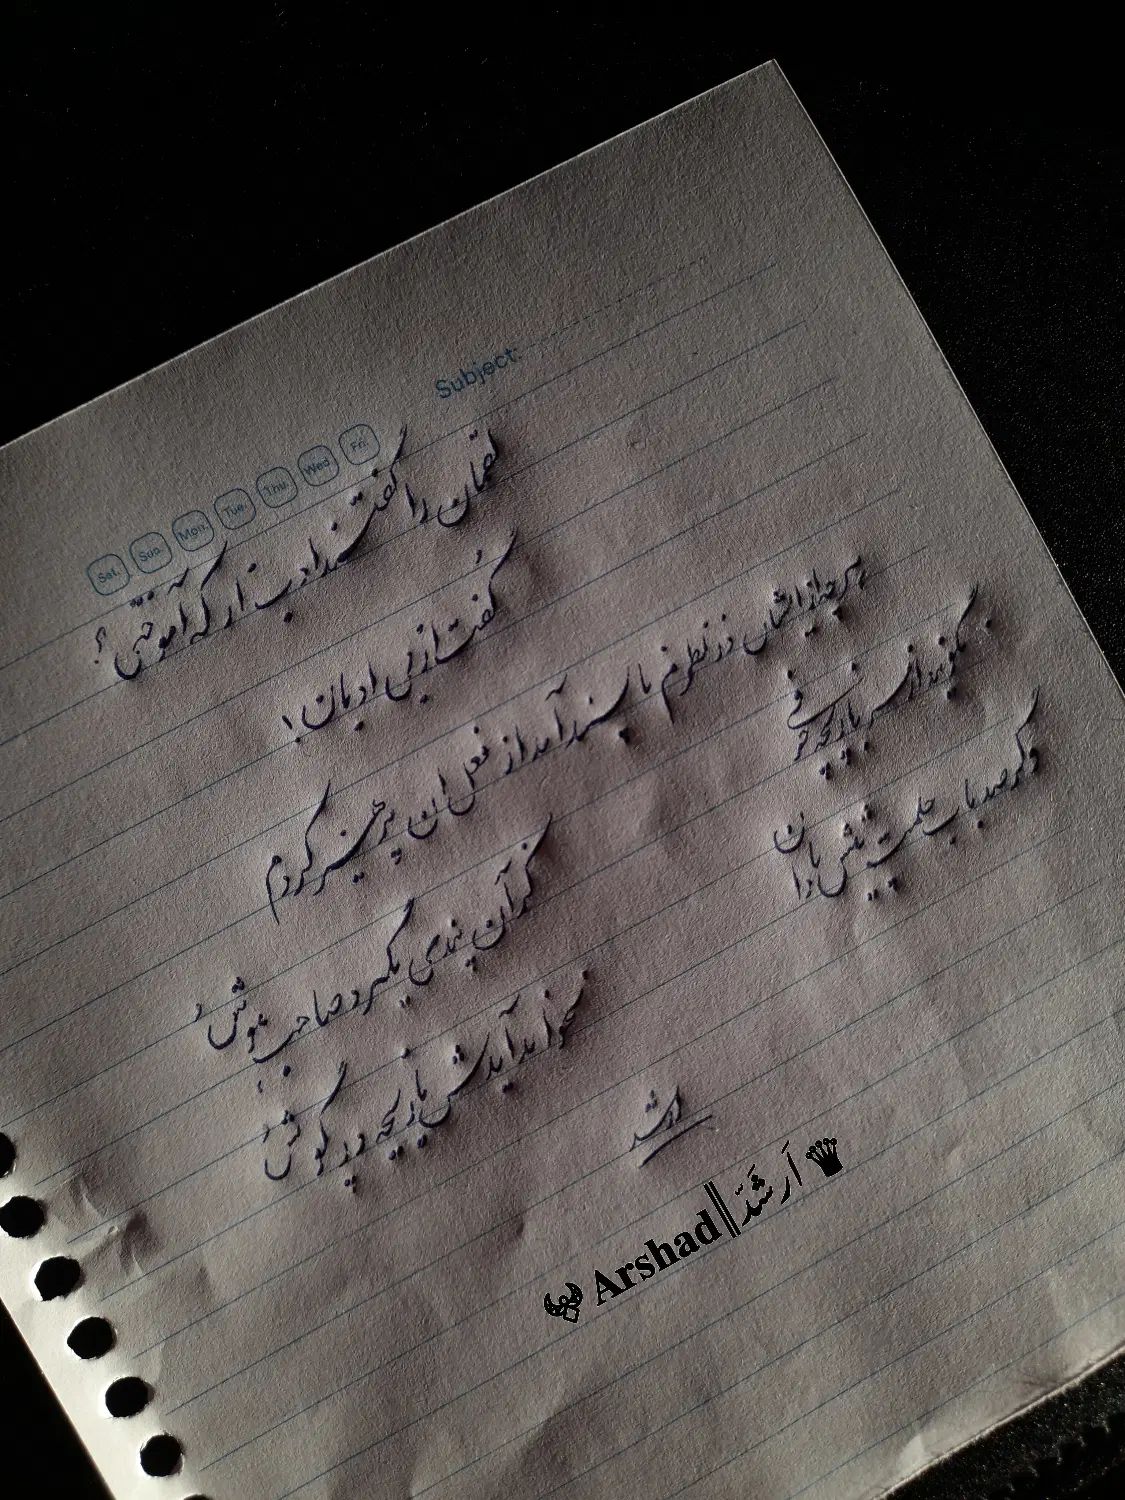 Subject:
Sat. Sun. Mon. Tue. Thu. Wed. Fri.
لقمان را گفتند ادب از که آموختی؟
گفت از بی ادبان!
هر چه از ایشان در نظرم نا پسند آمد از فعل آن پرهیز کردم
نگویند از سر بازیچه حرفی
کز آن پندی نگیرد صاحب هوش
وگر صد باب حکمت پیش نادان
بخوانند آید ش بازیچه در گوش
ارشد
Arshad||اَرشَدّ